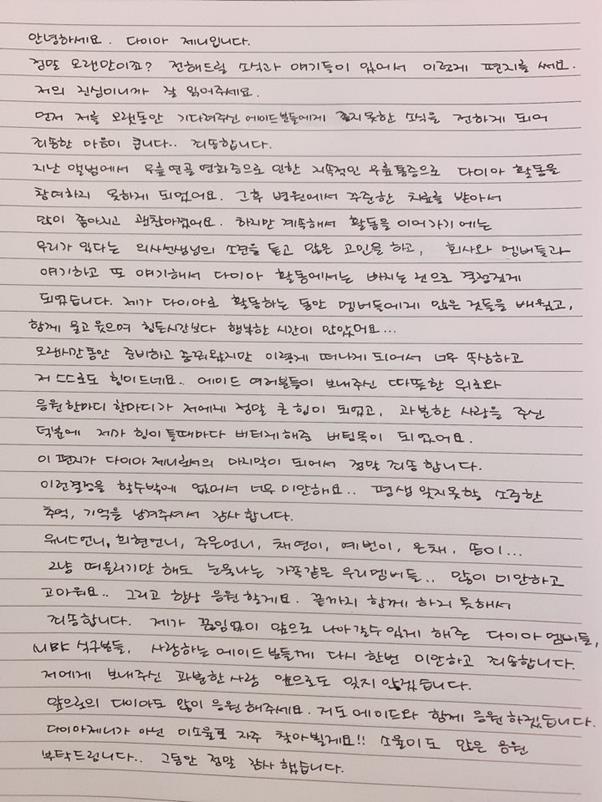 안녕하세요. 다이아 제니입니다.
정말 오랜만이죠? 전해드릴 소식과 얘기들이 있어서 이렇게 편지를 써요.
저의 진심이니까 잘 읽어주세요.
먼저 저를 오랫동안 기다려주신 에이드분들에게 좋지못한 소식을 전하게 되어
죄송한 마음이 큽니다.. 죄송합니다.
지난 앨범에서 무릎연골 연화증으로 인한 지속적인 무릎통증으로 다이아 활동을
참여하지 못하게 되었어요. 그후 병원에서 꾸준한 치료를 받아서
많이 좋아지고 괜찮아졌어요. 하지만 계속해서 활동을 이어가기에는
무리가 있다는 의사선생님의 소견을 듣고 많은 고민을 하고, 회사와 멤버들과
얘기하고 또 얘기해서 다이아 활동에서는 빠지는 걸로 결정짓게
되었습니다. 제가 다이아로 활동하는 동안 멤버들에게 많은 것들을 배웠고,
함께 울고 웃으며 힘든시간보다 행복한 시간이 많았어요...
오랜시간동안 준비하고 꿈꿔왔지만 이렇게 떠나게 되어서 너무 속상하고
저 스스로도 힘이드네요.. 에이드 여러분들이 보내주신 따뜻한 위로와
응원한마디 한마디가 저에게 정말 큰 힘이 되었고, 과분한 사랑을 주신
덕분에 제가 힘이들때마다 버티게해준 버팀목이 되었어요.
이 편지가 다이아 제니로서의 마지막이 되어서 정말 죄송합니다.
이런결정을 할수밖에 없어서 너무 미안해요.. 평생 잊지못할 소중한
추억, 기억을 남겨주셔서 감사합니다.
유니스언니, 희현언니, 주은언니, 채연이, 예빈이, 은채, 솜이...
그냥 떠올리기만 해도 눈물나는 가족같은 우리멤버들.. 많이 미안하고
고마워요.. 그리고 항상 응원할게요. 끝까지 함께 하지 못해서
죄송합니다. 제가 끊임없이 앞으로 나아갈수 있게 해준 다이아 멤버들,
MBK 식구분들, 사랑하는 에이드 분들께 다시 한번 미안하고 죄송합니다.
저에게 보내주신 과분한사랑 앞으로도 잊지 않겠습니다.
앞으로의 다이아도 많이 응원해주세요. 저도 에이드와 함께 응원하겠습니다.
다이아제니가 아닌 이소율로 자주 찾아뵐게요!! 소율이도 많은 응원
부탁드립니다.. 그동안 정말 감사 했습니다.